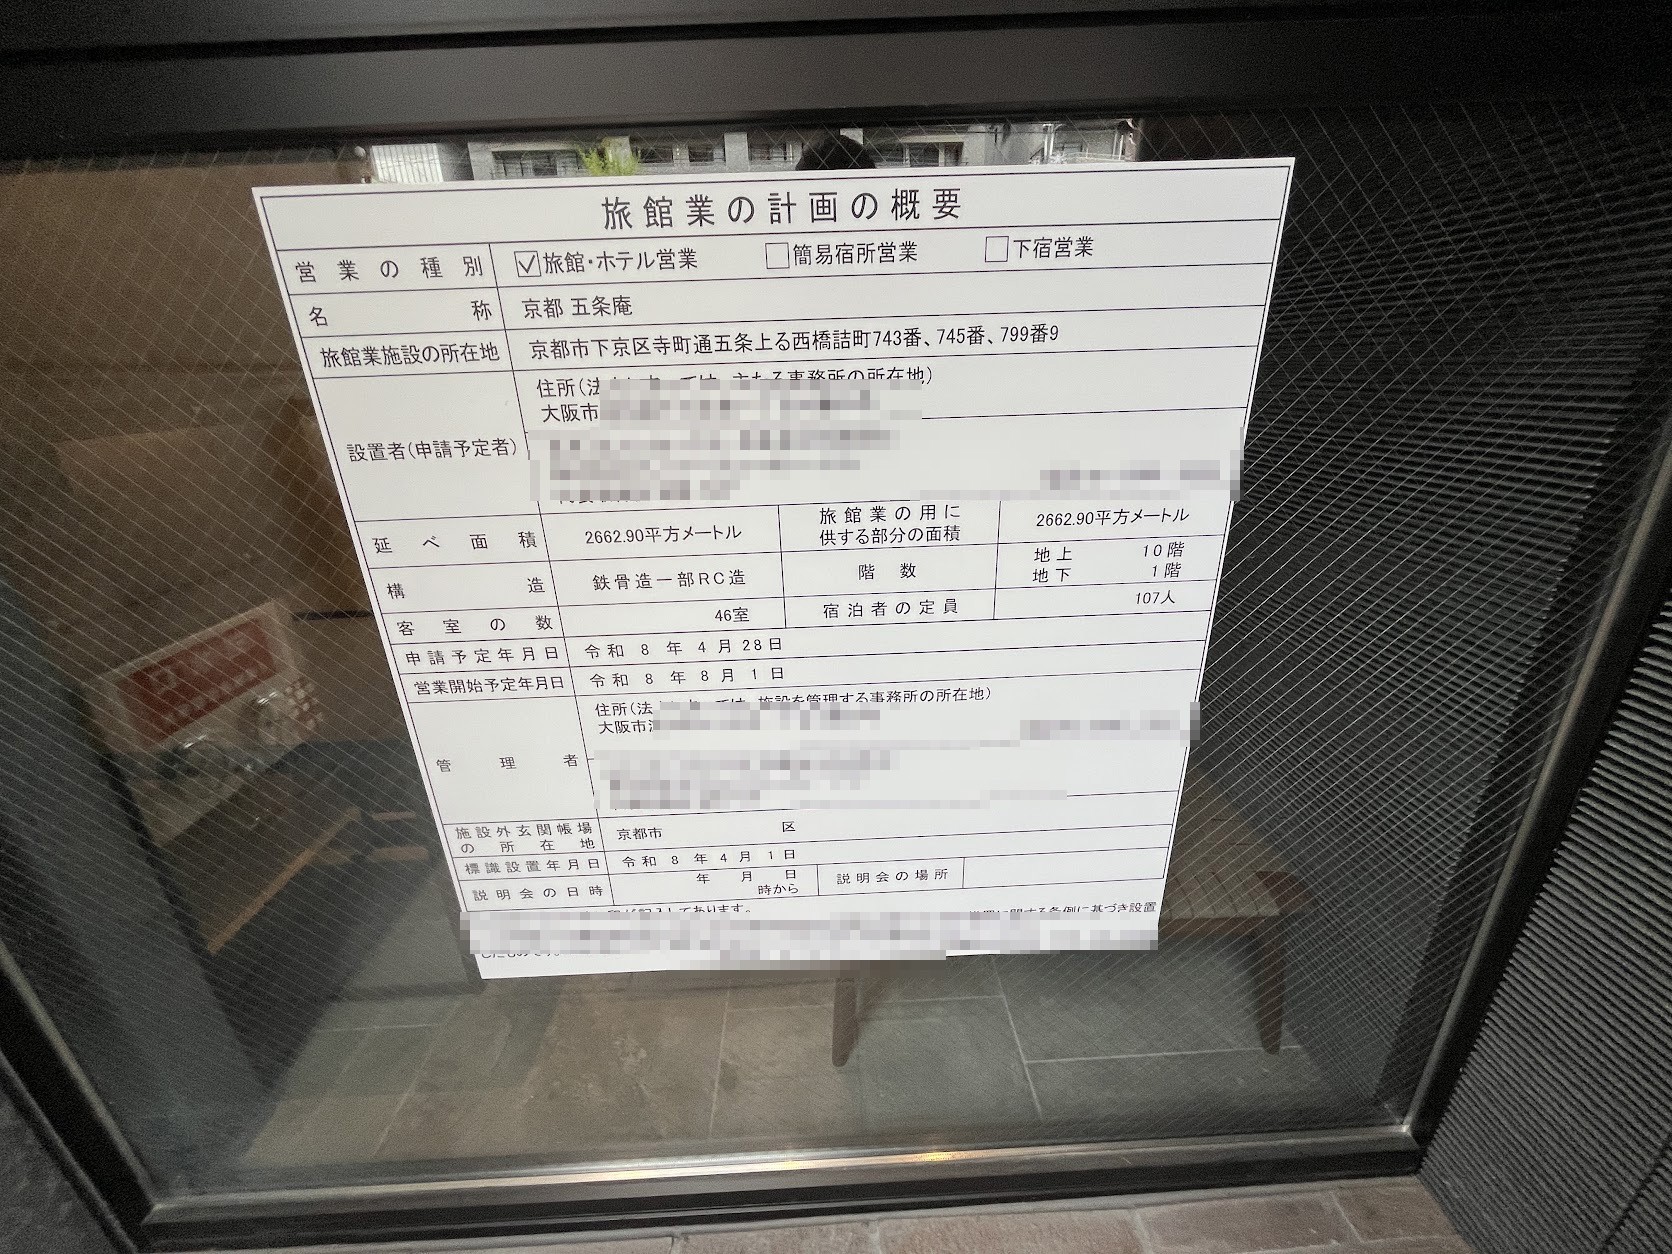 旅館業の計画の概要
営業の種別 ☑旅館・ホテル営業 □簡易宿所営業 □下宿営業
名称 京都 五条庵
旅館業施設の所在地 京都市下京区寺町通五条上る西橋詰町743番、745番、799番9
設置者(申請予定者) 住所(法 主たる事務所の所在地)
大阪市
延べ面積 2662.90平方メートル 旅館業の用に供する部分の面積 2662.90平方メートル
構造 鉄骨造一部RC造 階数 地上 10階
地下 1階
客室の数 46室 宿泊者の定員 107人
申請予定年月日 令和 8 年 4 月 28日
営業開始予定年月日 令和 8 年 8 月 1 日
管理者 住所(法 ては、施設を管理する事務所の所在地)
大阪市
施設外玄関帳場の所在地 京都市 区
標識設置年月日 令和 8 年 4 月 1 日
説明会の日時 年 月 日 時から 説明会の場所
が記入してあります。
に関する条例に基づき設置
したものです。